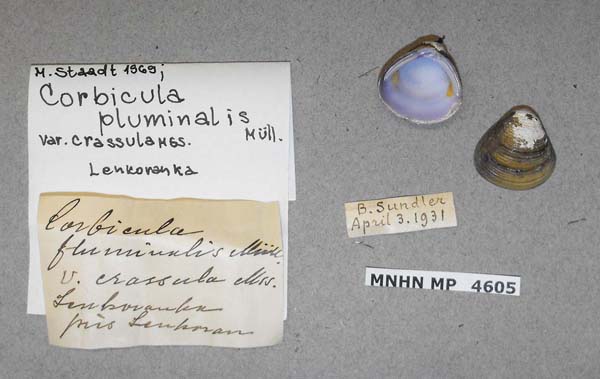 M. Staadt 1969;
Corbicula
pluminalis
Müll.
var. crassula Mss.
Lenkoranka
Corbicula
fluminalis Müll.
v. crassula Mss.
Lenkoranka
près Lenkoran
B. Sundler
April 3. 1931
MNHN MP 4605